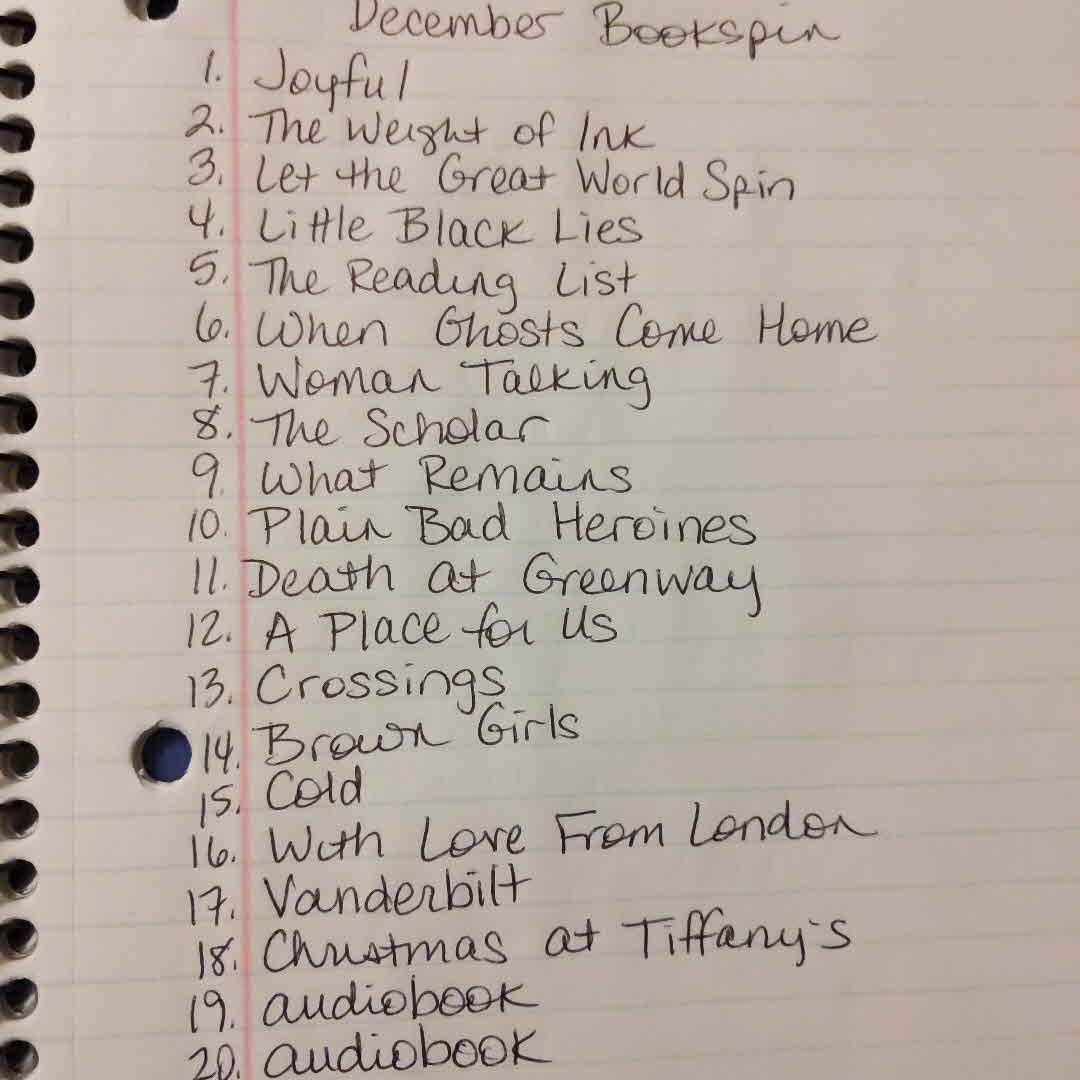 December Bookspin
1. Joyful
2. The Weight of Ink
3. Let the Great World Spin
4. Little Black Lies
5. The Reading List
6. When Ghosts Come Home
7. Woman Talking
8. The Scholar
9. What Remains
10. Plain Bad Heroines
11. Death at Greenway
12. A Place for Us
13. Crossings
14. Brown Girls
15. Cold
16. With Love From London
17. Vanderbilt
18. Christmas at Tiffany's
19. audiobook
20. audiobook